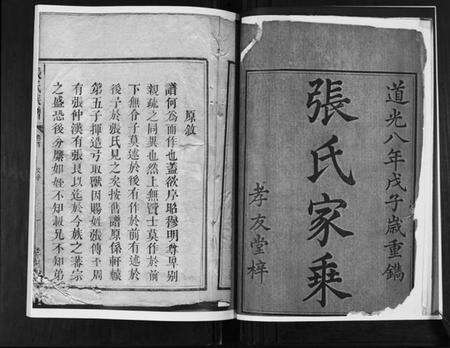 道光八年戊子歲重鐫
張氏家乘
孝友堂梓
原敘
譜何為而作也蓋欲序昭穆明尊卑别
親疏之同異也然上無賢士莫作於前
下無令子莫述於後有作於前有述於
後吾於張氏見之矣按舊譜原係軒轅
第五子揮造弓取獸因賜姓張傳千周
有張仲漢有張良以迄於今族之蕃宗
之盛恐後分縻如姪不知叔兄不知弟